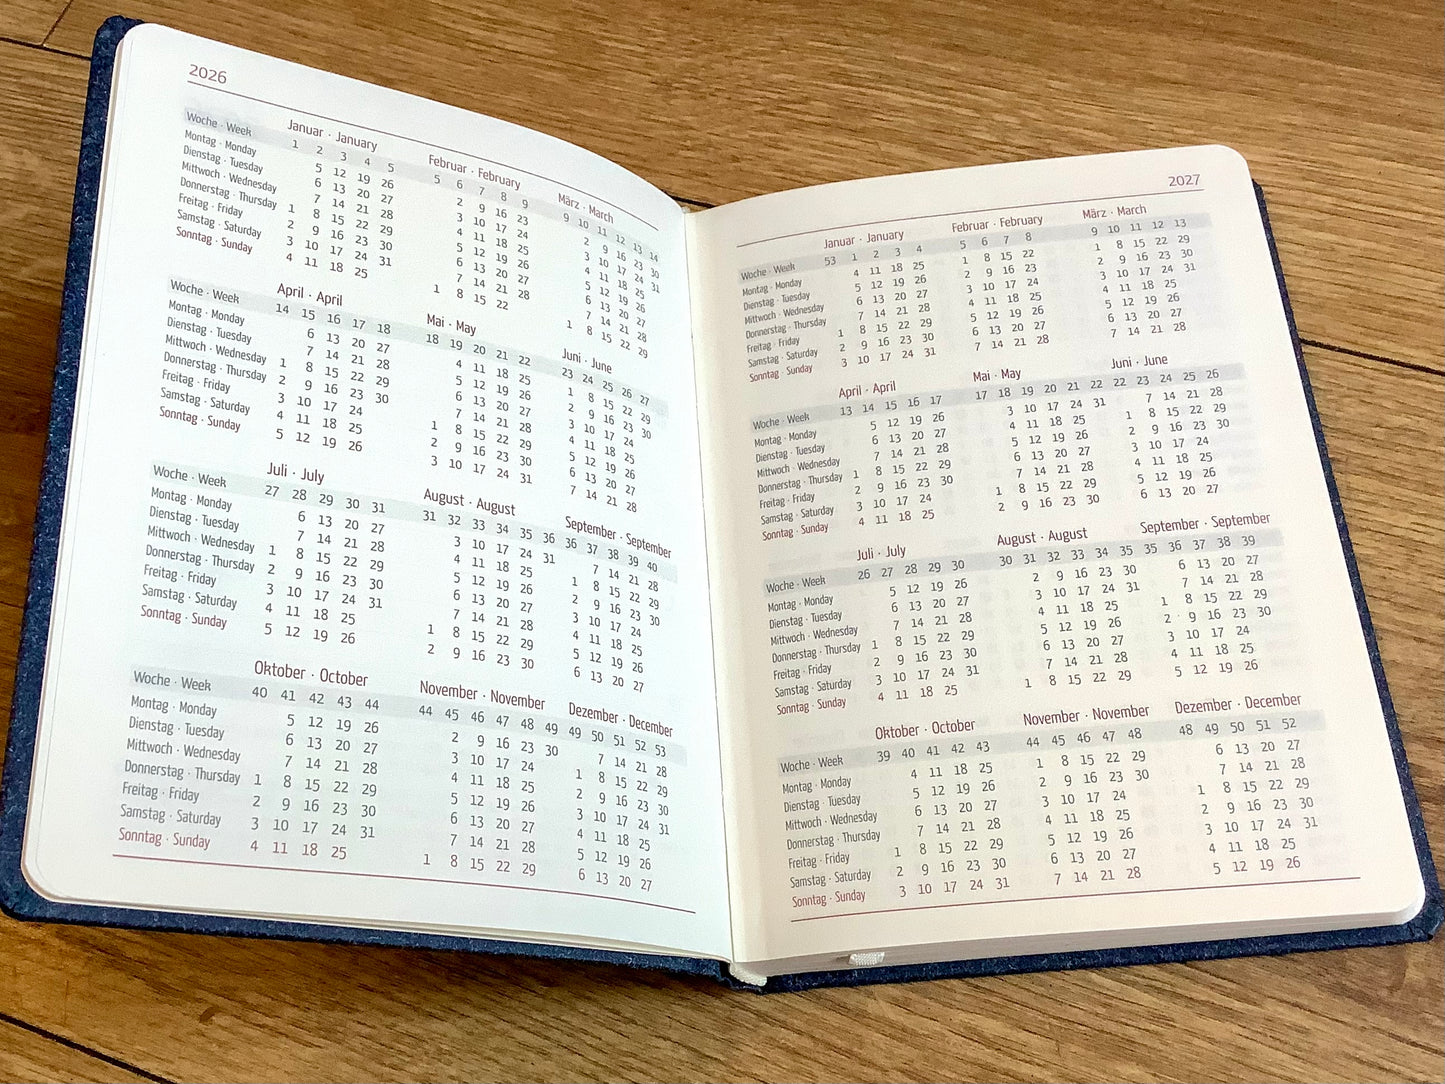 2026
Januar · January Februar · February März · March
Woche · Week 1 2 3 4 5 5 6 7 8 9 9 10 11 12 13 14
Montag · Monday 5 12 19 26 2 9 16 23 2 9 16 23 30
Dienstag · Tuesday 6 13 20 27 3 10 17 24 3 10 17 24 31
Mittwoch · Wednesday 7 14 21 28 4 11 18 25 4 11 18 25
Donnerstag · Thursday 1 8 15 22 29 5 12 19 26 5 12 19 26
Freitag · Friday 2 9 16 23 30 6 13 20 27 6 13 20 27
Samstag · Saturday 3 10 17 24 31 7 14 21 28 7 14 21 28
Sonntag · Sunday 4 11 18 25 1 8 15 22 1 8 15 22 29
April · April Mai · May Juni · June
Woche · Week 14 15 16 17 18 18 19 20 21 22 23 24 25 26 27
Montag · Monday 6 13 20 27 4 11 18 25 1 8 15 22 29
Dienstag · Tuesday 7 14 21 28 5 12 19 26 2 9 16 23 30
Mittwoch · Wednesday 1 8 15 22 29 6 13 20 27 3 10 17 24
Donnerstag · Thursday 2 9 16 23 30 7 14 21 28 4 11 18 25
Freitag · Friday 3 10 17 24 1 8 15 22 29 5 12 19 26
Samstag · Saturday 4 11 18 25 2 9 16 23 30 6 13 20 27
Sonntag · Sunday 5 12 19 26 3 10 17 24 31 7 14 21 28
Juli · July August · August September · September
Woche · Week 27 28 29 30 31 31 32 33 34 35 36 36 37 38 39 40
Montag · Monday 6 13 20 27 3 10 17 24 31 7 14 21 28
Dienstag · Tuesday 7 14 21 28 4 11 18 25 1 8 15 22 29
Mittwoch · Wednesday 1 8 15 22 29 5 12 19 26 2 9 16 23 30
Donnerstag · Thursday 2 9 16 23 30 6 13 20 27 3 10 17 24
Freitag · Friday 3 10 17 24 31 7 14 21 28 4 11 18 25
Samstag · Saturday 4 11 18 25 1 8 15 22 29 5 12 19 26
Sonntag · Sunday 5 12 19 26 2 9 16 23 30 6 13 20 27
Oktober · October November · November Dezember · December
Woche · Week 40 41 42 43 44 44 45 46 47 48 49 49 50 51 52 53
Montag · Monday 5 12 19 26 2 9 16 23 30 7 14 21 28
Dienstag · Tuesday 6 13 20 27 3 10 17 24 1 8 15 22 29
Mittwoch · Wednesday 7 14 21 28 4 11 18 25 2 9 16 23 30
Donnerstag · Thursday 1 8 15 22 29 5 12 19 26 3 10 17 24 31
Freitag · Friday 2 9 16 23 30 6 13 20 27 4 11 18 25
Samstag · Saturday 3 10 17 24 31 7 14 21 28 5 12 19 26
Sonntag · Sunday 4 11 18 25 1 8 15 22 29 6 13 20 27
2027
Januar · January Februar · February März · March
Woche · Week 53 1 2 3 4 5 6 7 8 9 10 11 12 13
Montag · Monday 4 11 18 25 1 8 15 22 1 8 15 22 29
Dienstag · Tuesday 5 12 19 26 2 9 16 23 2 9 16 23 30
Mittwoch · Wednesday 6 13 20 27 3 10 17 24 3 10 17 24 31
Donnerstag · Thursday 7 14 21 28 4 11 18 25 4 11 18 25
Freitag · Friday 1 8 15 22 29 5 12 19 26 5 12 19 26
Samstag · Saturday 2 9 16 23 30 6 13 20 27 6 13 20 27
Sonntag · Sunday 3 10 17 24 31 7 14 21 28 7 14 21 28
April · April Mai · May Juni · June
Woche · Week 13 14 15 16 17 17 18 19 20 21 22 22 23 24 25 26
Montag · Monday 5 12 19 26 3 10 17 24 31 7 14 21 28
Dienstag · Tuesday 6 13 20 27 4 11 18 25 1 8 15 22 29
Mittwoch · Wednesday 7 14 21 28 5 12 19 26 2 9 16 23 30
Donnerstag · Thursday 1 8 15 22 29 6 13 20 27 3 10 17 24
Freitag · Friday 2 9 16 23 30 7 14 21 28 4 11 18 25
Samstag · Saturday 3 10 17 24 1 8 15 22 29 5 12 19 26
Sonntag · Sunday 4 11 18 25 2 9 16 23 30 6 13 20 27
Juli · July August · August September · September
Woche · Week 26 27 28 29 30 30 31 32 33 34 35 35 36 37 38 39
Montag · Monday 5 12 19 26 2 9 16 23 30 6 13 20 27
Dienstag · Tuesday 6 13 20 27 3 10 17 24 31 7 14 21 28
Mittwoch · Wednesday 7 14 21 28 4 11 18 25 1 8 15 22 29
Donnerstag · Thursday 1 8 15 22 29 5 12 19 26 2 9 16 23 30
Freitag · Friday 2 9 16 23 30 6 13 20 27 3 10 17 24
Samstag · Saturday 3 10 17 24 31 7 14 21 28 4 11 18 25
Sonntag · Sunday 4 11 18 25 1 8 15 22 29 5 12 19 26
Oktober · October November · November Dezember · December
Woche · Week 39 40 41 42 43 44 45 46 47 48 48 49 50 51 52
Montag · Monday 4 11 18 25 1 8 15 22 29 6 13 20 27
Dienstag · Tuesday 5 12 19 26 2 9 16 23 30 7 14 21 28
Mittwoch · Wednesday 6 13 20 27 3 10 17 24 1 8 15 22 29
Donnerstag · Thursday 7 14 21 28 4 11 18 25 2 9 16 23 30
Freitag · Friday 1 8 15 22 29 5 12 19 26 3 10 17 24 31
Samstag · Saturday 2 9 16 23 30 6 13 20 27 4 11 18 25
Sonntag · Sunday 3 10 17 24 31 7 14 21 28 5 12 19 26